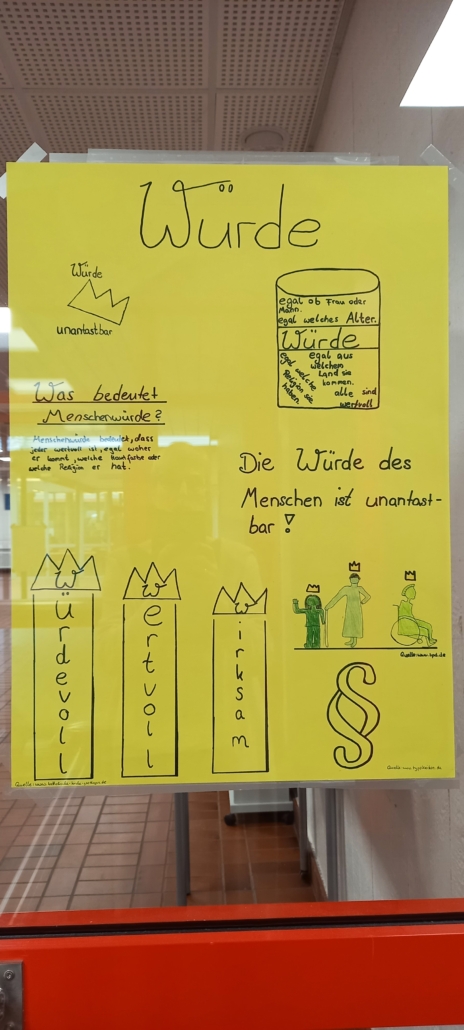 Würde
Würde
unantastbar
egal ob Frau oder
Mann.
egal welches Alter.
Würde
egal welche
Religion sie
haben.
egal aus
welchem
Land sie
kommen.
alle sind
wertvoll
Was bedeutet
Menschenwürde?
Menschenwürde bedeutet, dass
jeder wertvoll ist, egal woher
er kommt, welche Hautfarbe oder
welche Religion er hat.
Die Würde des
Menschen ist unantast-
bar!
Würdevoll
Wertvoll
Wirksam
§